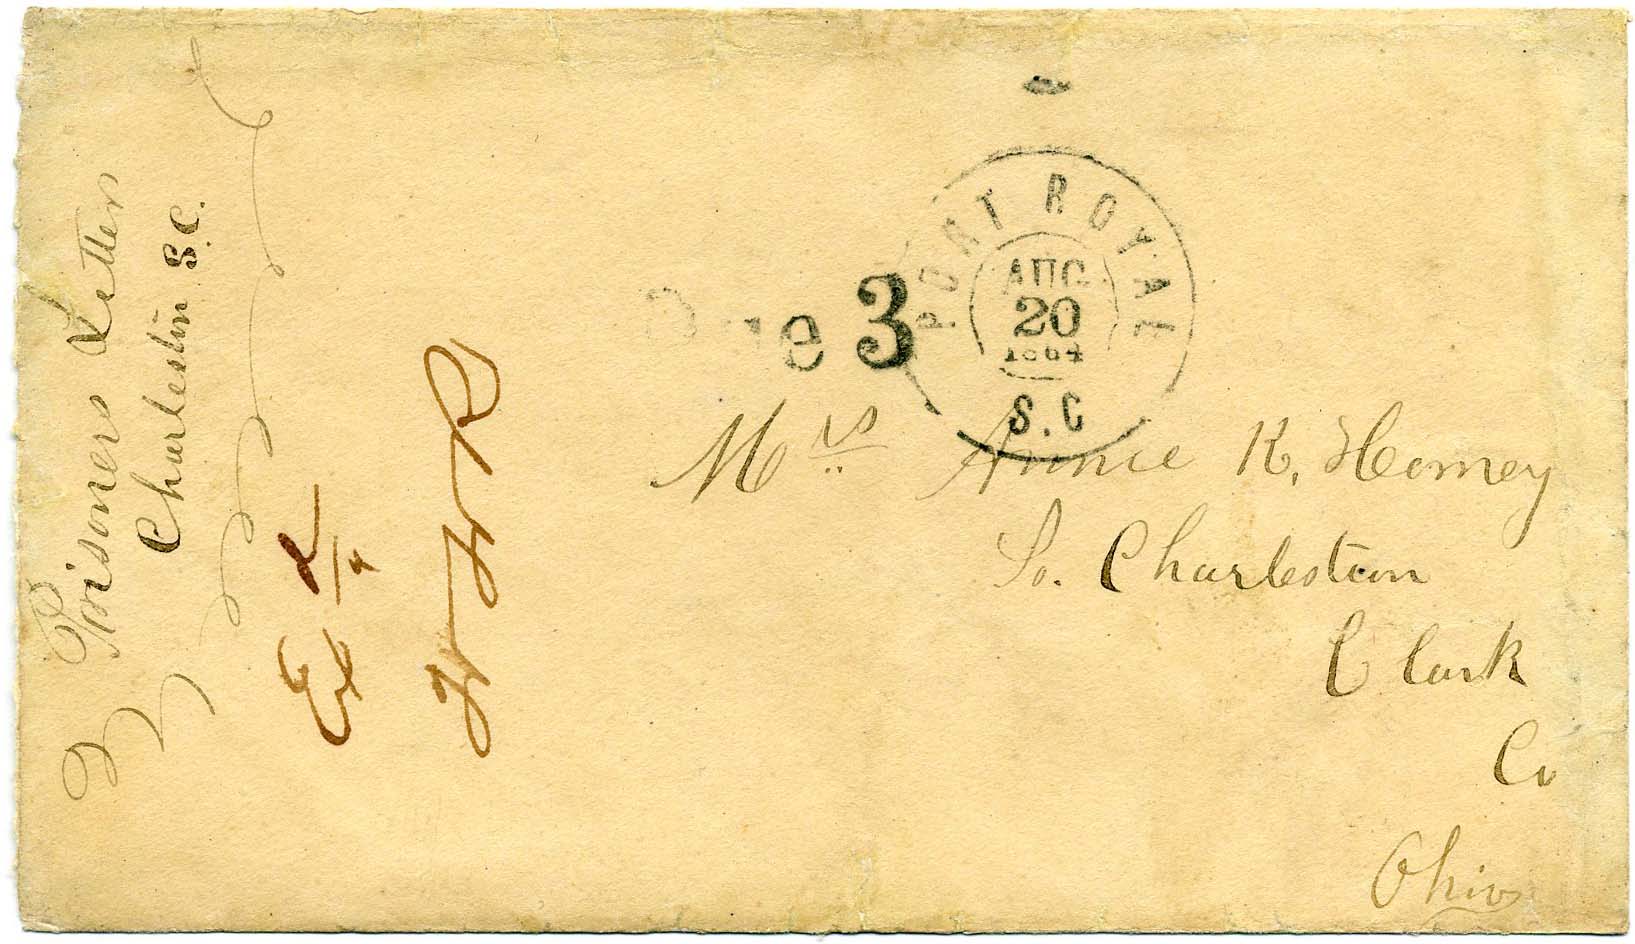 Prisoners Letter
Charleston S.C.
Due 3
PORT ROYAL
AUG
20
1864
S.C
Mrs Annie K. Horney
So. Charleston
Clark
Co
Ohio